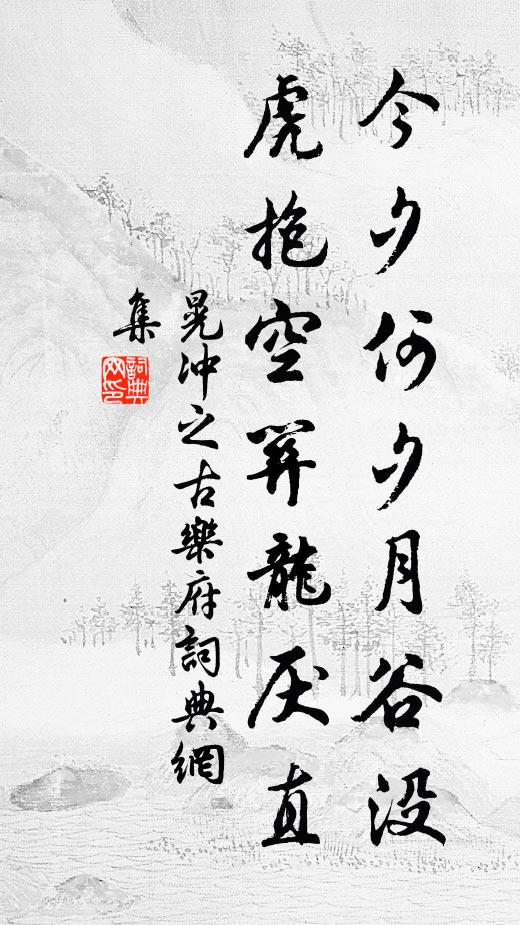 今夕何夕月谷没
虎抱空關龍厌直
晁冲之古樂府詞典網
集
詞典
网印